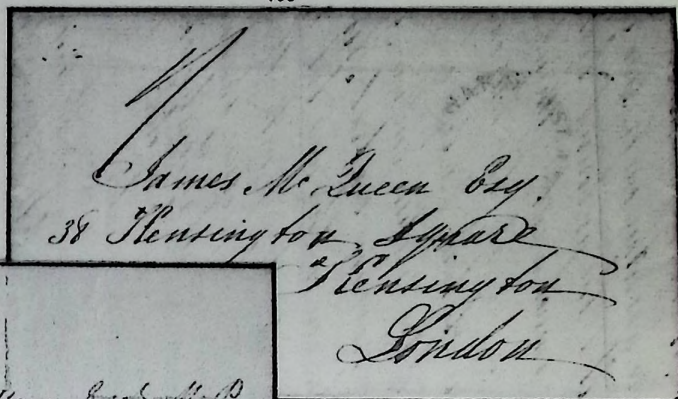 James Mc Queen Esq.
38 Kensington Square
Kensington
London